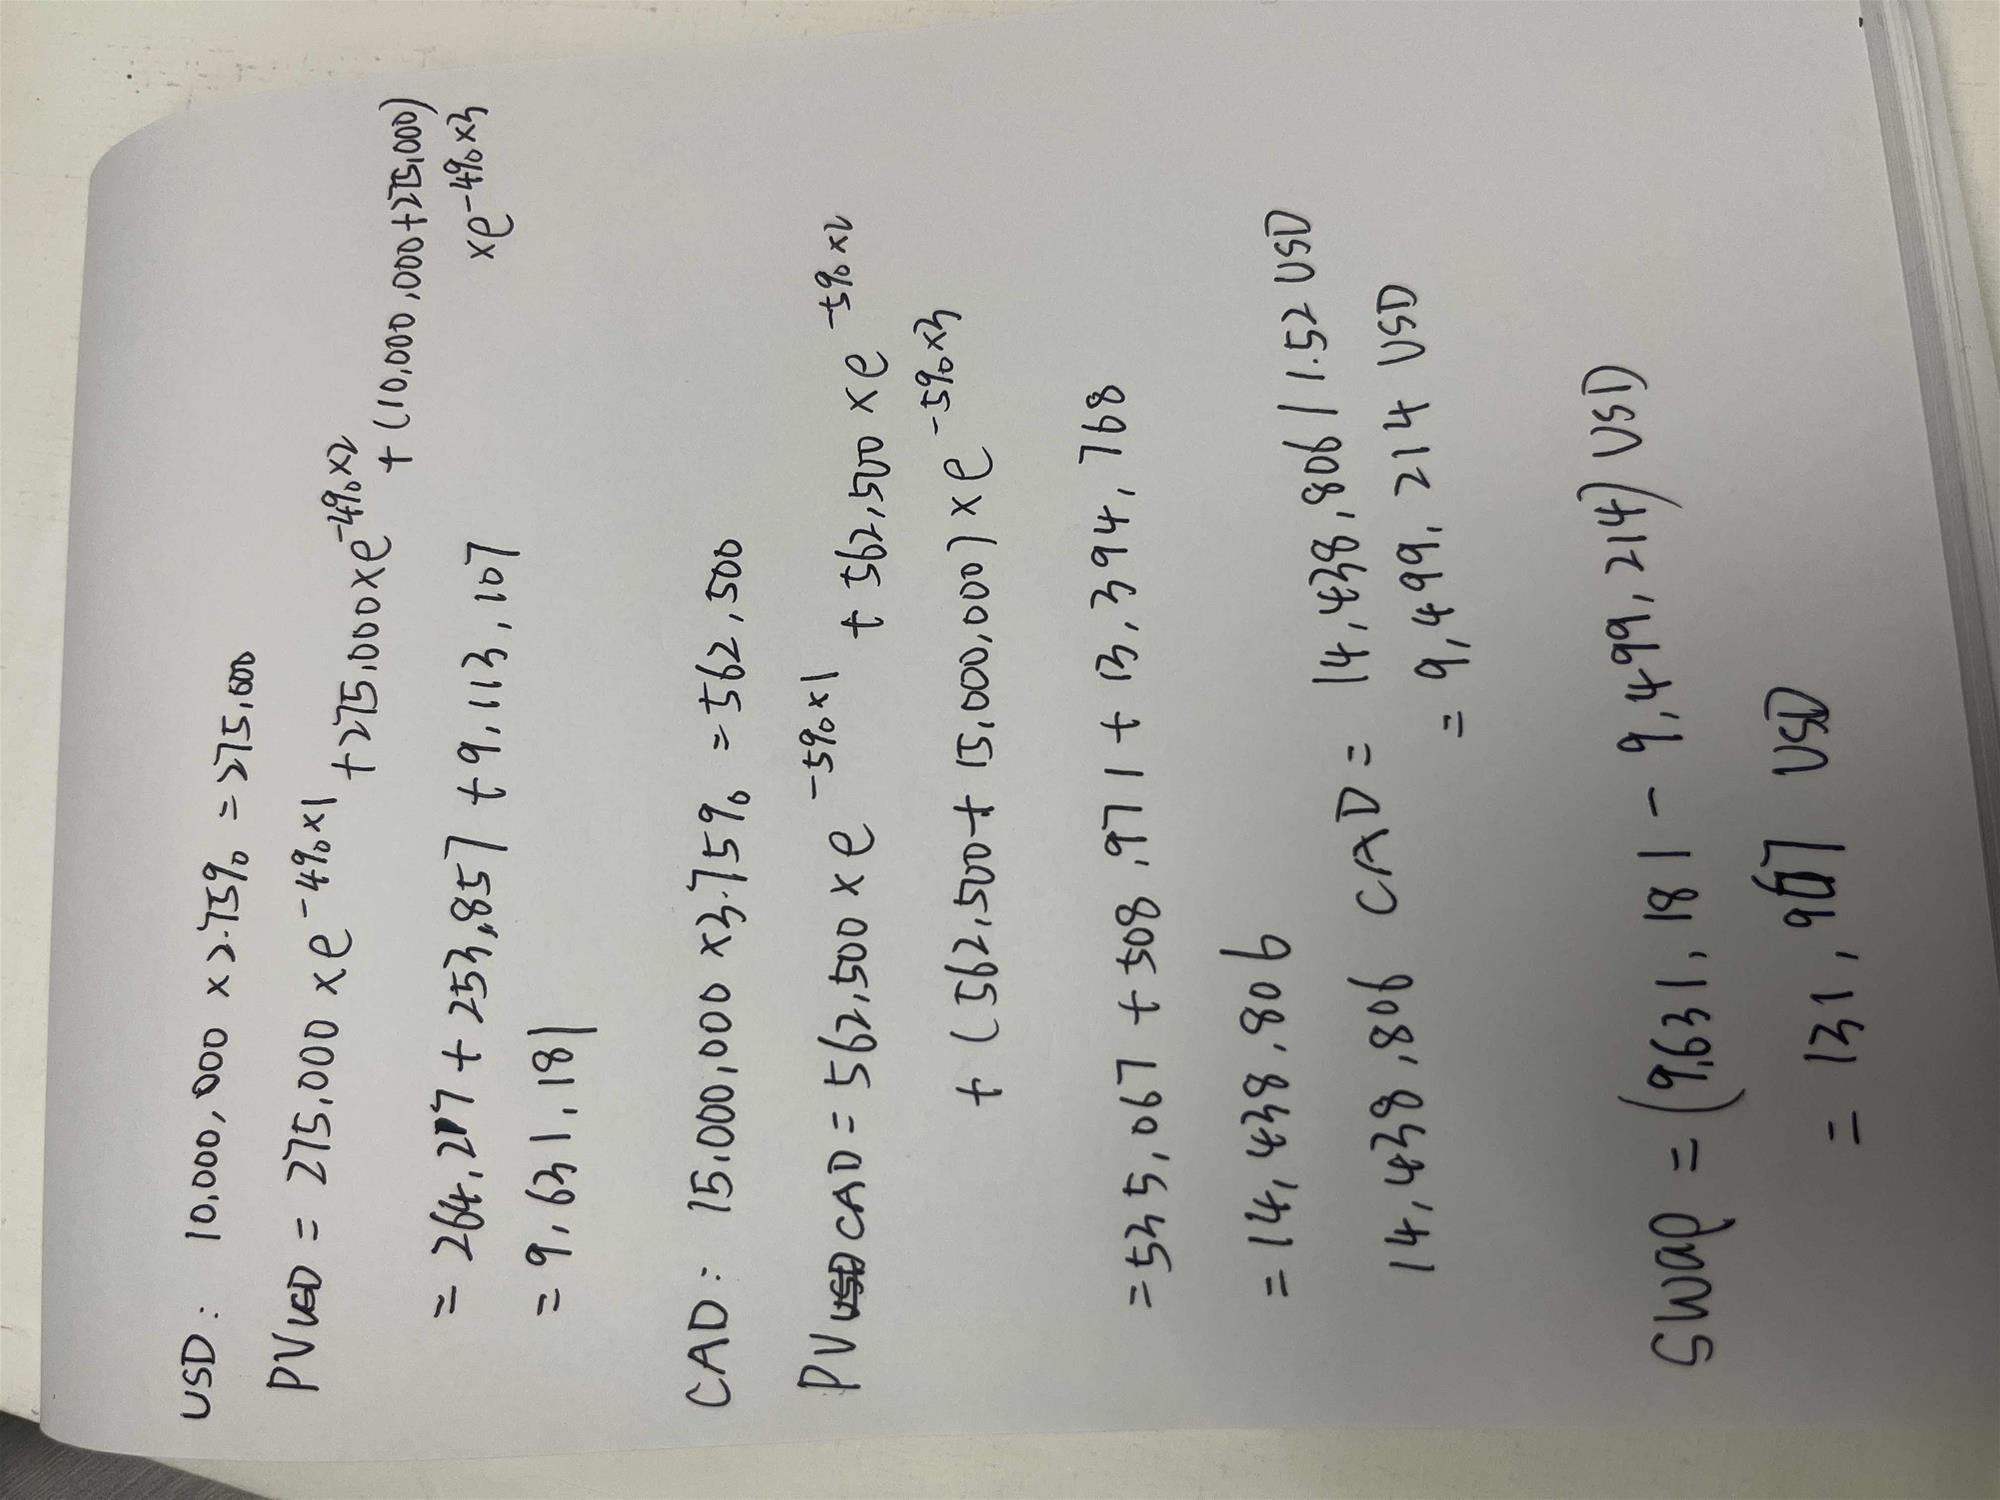 USD: 10,000,000 x 2.75% = 275,000
PV USD = 275,000 x e^-4%x1
+275,000xe^-4%x2
+ (10,000,000+275,000)
xe^-4%x3
= 264,217 + 253,857 + 9,113,107
= 9,631,181
CAD: 15,000,000 x3.75% = 562,500
PV USD CAD = 562,500 x e^-5%x1
+ 562,500 x e^-5%x2
+ (562,500+ 15,000,000) x e^-5%x3
= 535,067 + 508,971 + 13,394,768
= 14,438,806
14,438,806 CAD = 14,438,806 / 1.52 USD
= 9,499,214 USD
Swap = (9,631,181 - 9,499,214) USD
= 131,967 USD